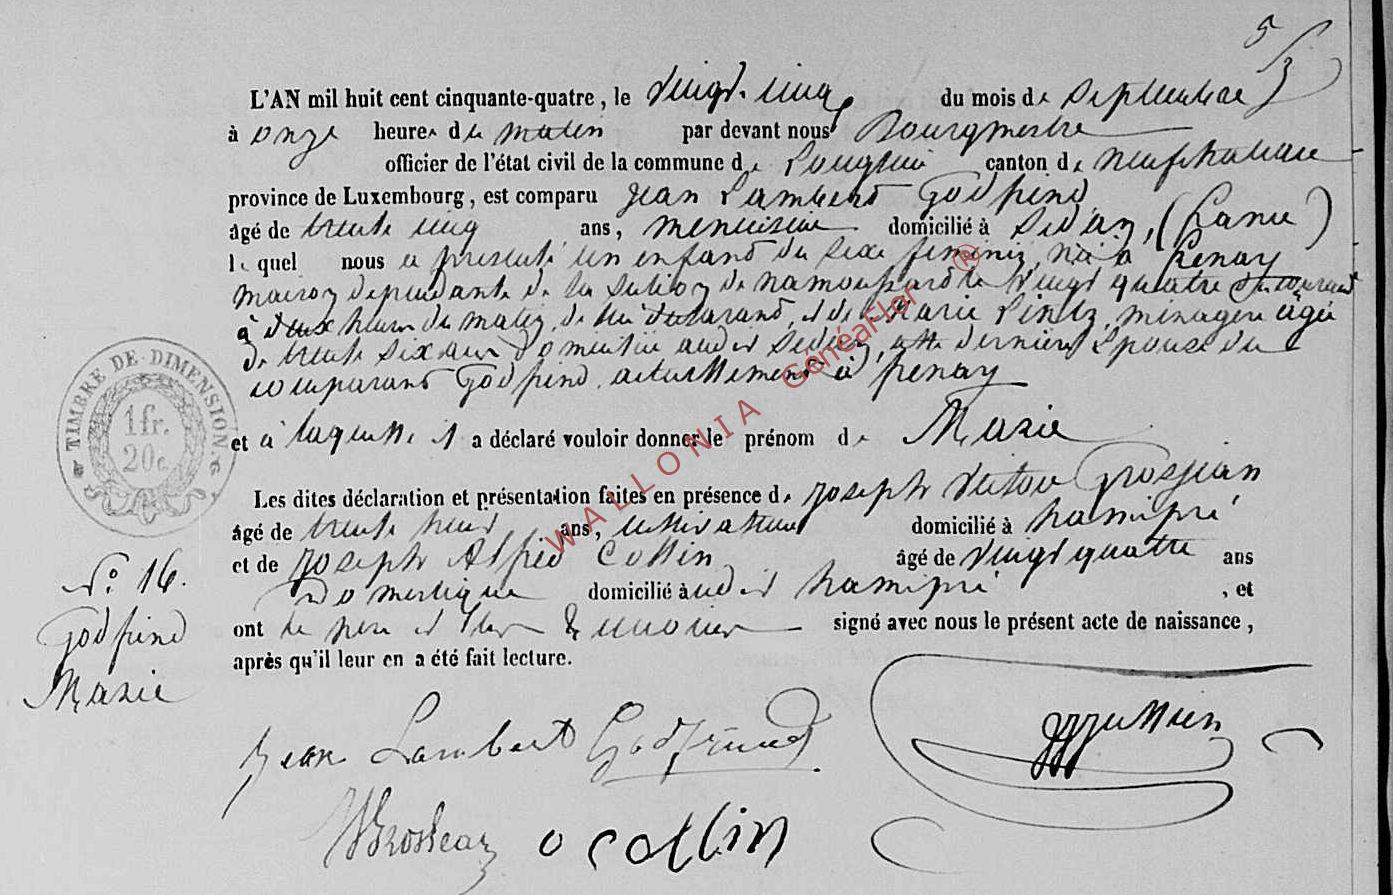 5/3
L'AN mil huit cent cinquante-quatre, le vingt-cinq du mois de septembre
à onze heures du matin par devant nous Bourgmestre
officier de l'état civil de la commune de Longlier canton de neufchateau
province de Luxembourg, est comparu Jean Lambert Godfrind
âgé de trente cinq ans, menuisier domicilié à Sedan, (France)
lequel nous a présenté un enfant du sexe feminin, né à
maison dépendante de la section de namoussart le vingt quatre du courant
à deux heures du matin, de lui déclarant, et de Marie ménagère agée
de trente six ans domiciliée audit Sedan, cette dernière épouse du
comparant Godfrind, actuellement à
et à laquelle il a déclaré vouloir donner le prénom de Marie
Les dites déclaration et présentation faites en présence de Joseph Victor Grosjean
âgé de trente neuf ans, cultivateur domicilié à hamipré
et de Joseph Alfred Collin âgé de vingt quatre ans
Domestique domicilié audit hamipré, et
ont le père et les témoins signé avec nous le présent acte de naissance,
après qu'il leur en a été fait lecture.
TIMBRE DE DIMENSION.
1 fr.
20c
N° 16.
Godfrind
Marie
Jean Lambert Godfrind
VGrosjean
Collin
WALLONIA Généafler ®